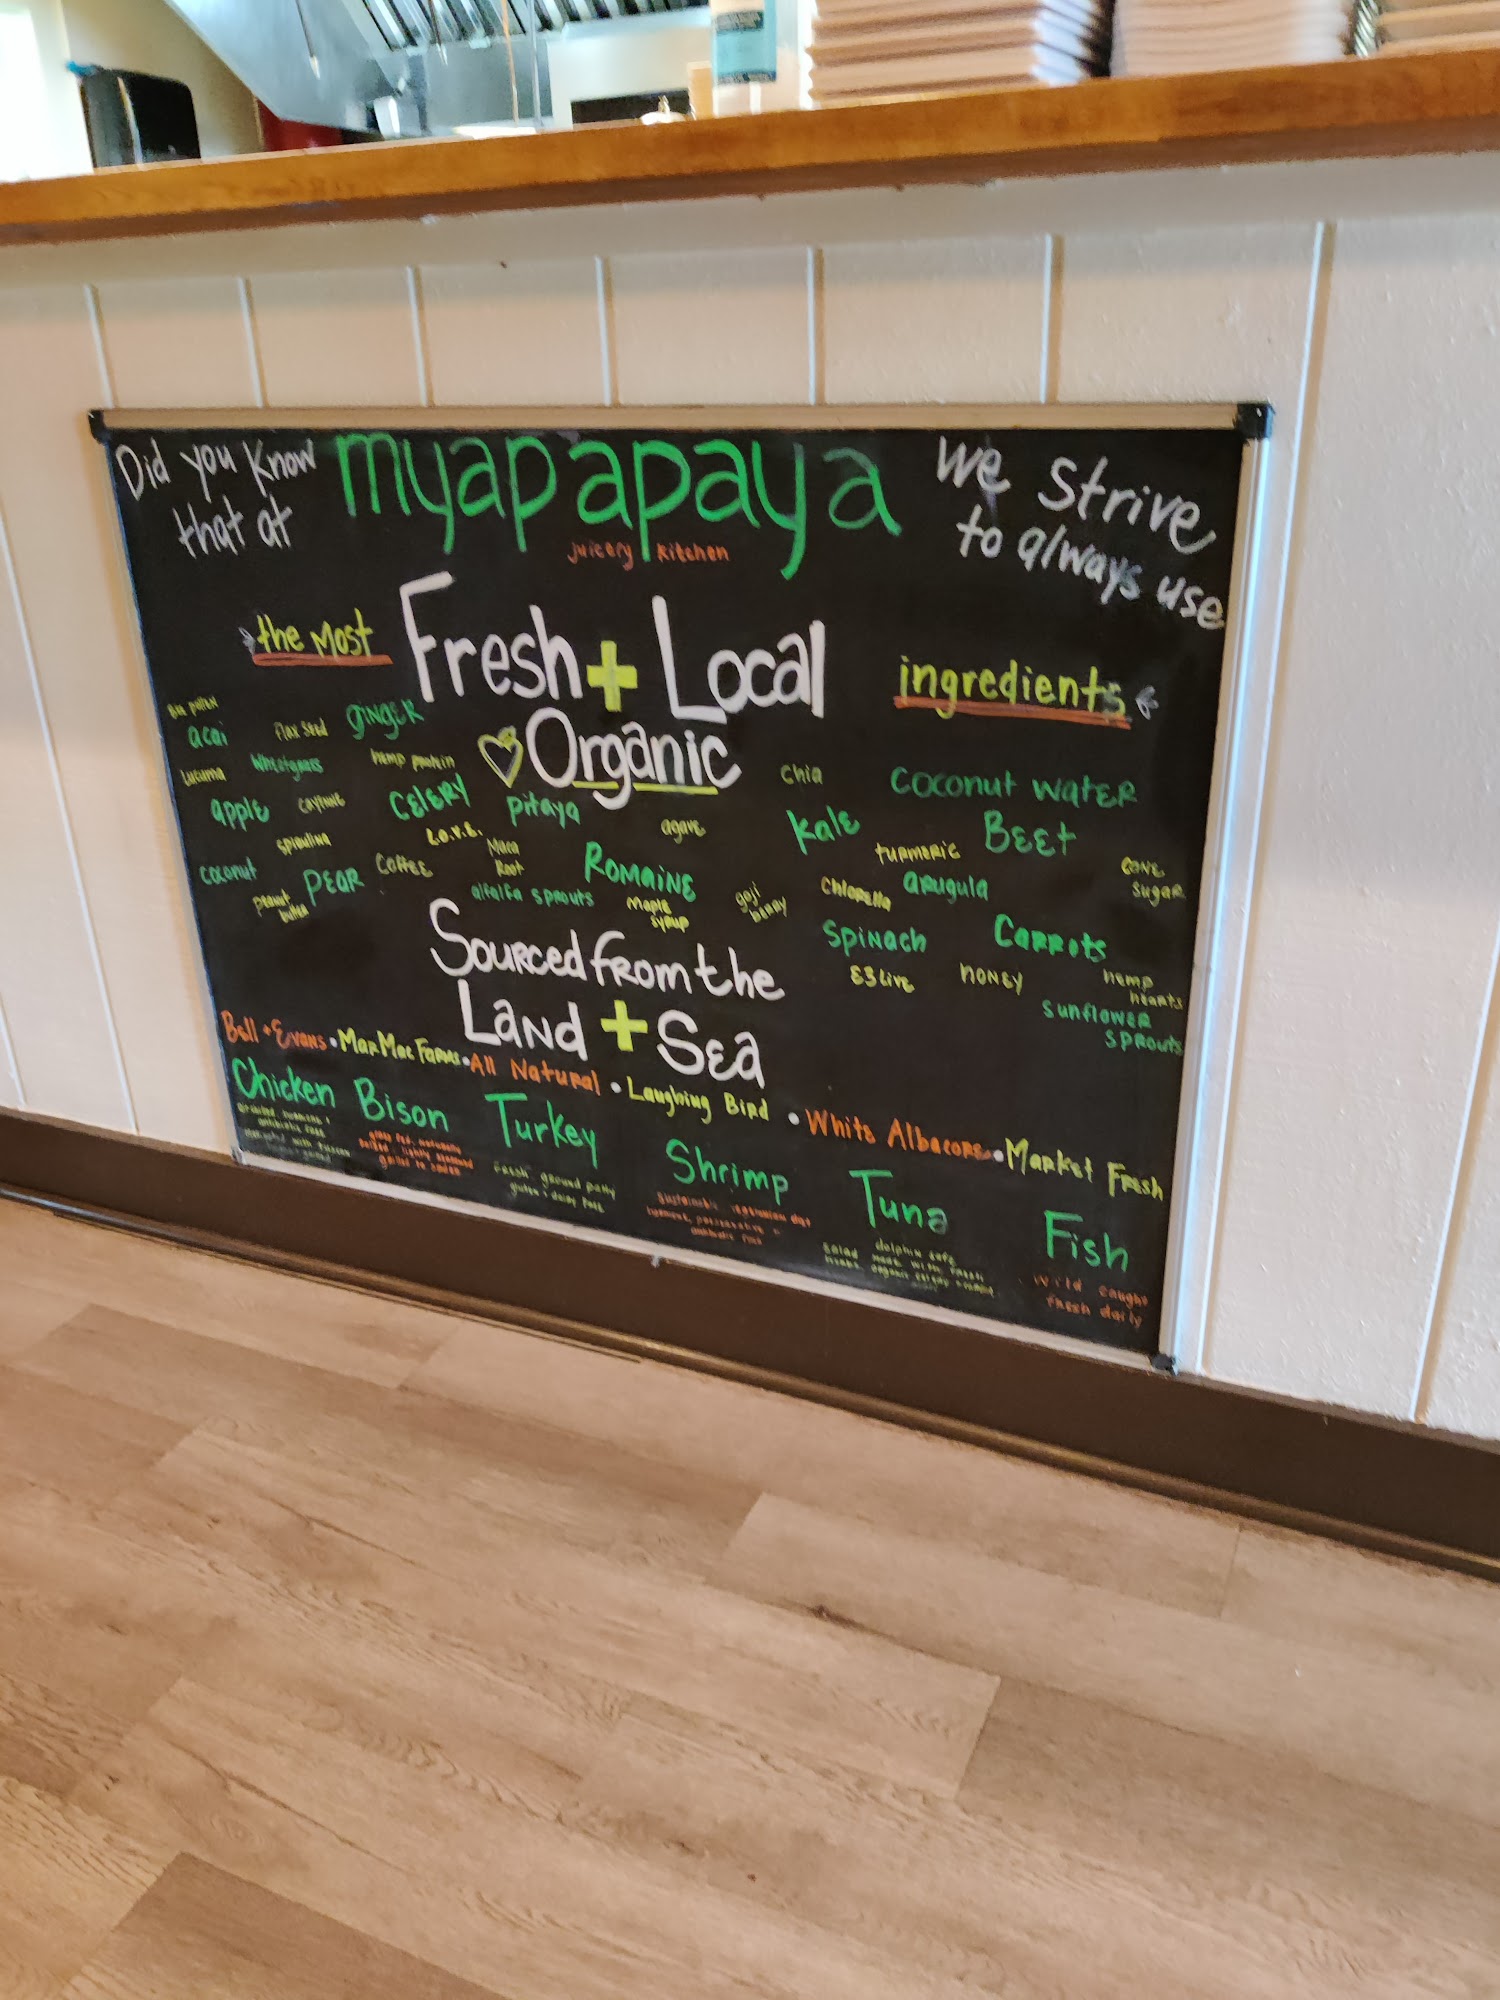 Did you know
that at
myapapaya
juicery kitchen
We strive
to always use
the most
Fresh + Local
Organic
ingredients
Bee pollen
acai
flax seed
ginger
Lucuma
Wheatgrass
hemp protein
apple
cayenne
celery
pitaya
spirulina
L.O.V.E.
Maca
Root
agave
coconut
peanut
butter
pear
coffee
alfalfa sprouts
Romaine
Maple
syrup
goji
berry
chia
coconut water
kale
turmeric
Beet
cane
sugar
Chlorella
arugula
spinach
carrots
E3Live
honey
hemp
hearts
sunflower
sprouts
Sourced from the
Land + Sea
Bell + Evans • MarMac Farms • All Natural • Laughing Bird • White Albacore • Market Fresh
Chicken Bison Turkey Shrimp Tuna Fish
fresh ground patty
gluten + dairy free
sustainable, vegetarian diet
dolphin safe
salad made with fresh
wild caught
fresh daily